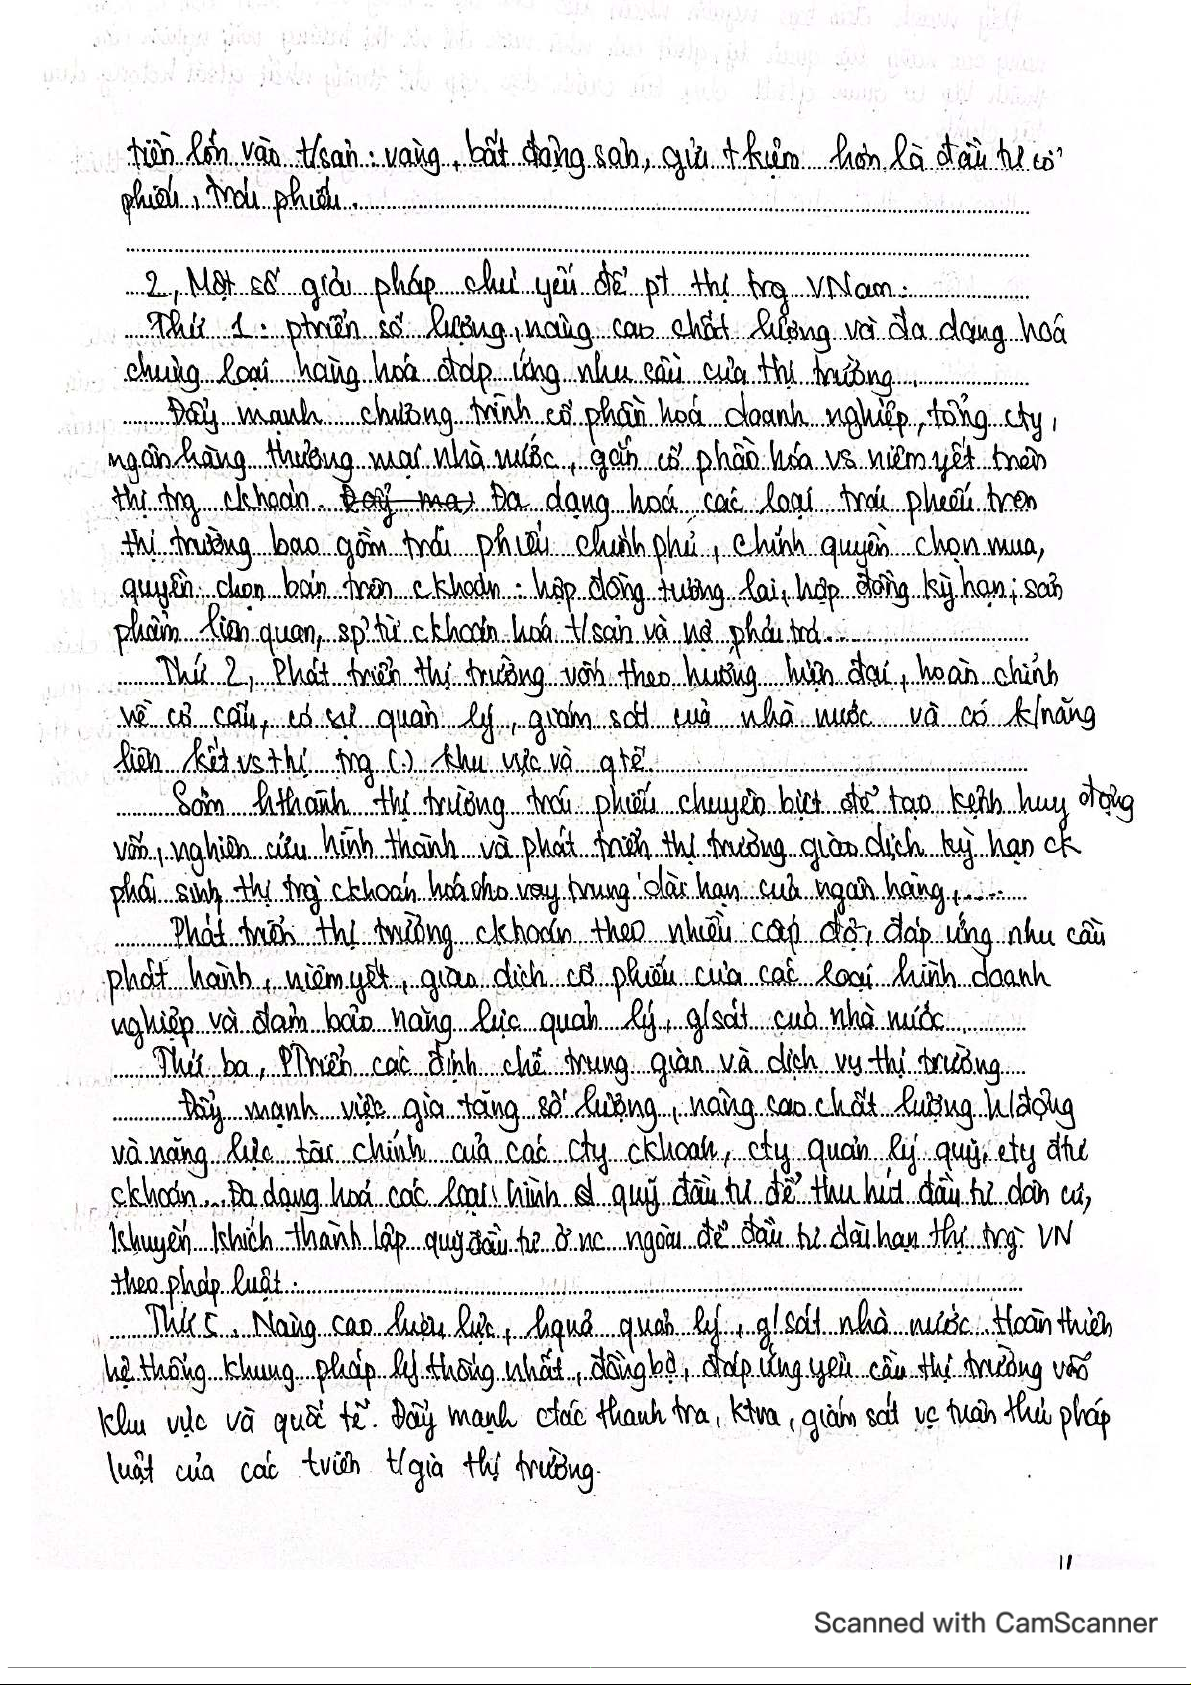 tiền lớn vào t/sản : vàng, bất động sản, gửi t kiệm hơn là đầu tư cổ
phiếu, trái phiếu.
2, Một số giải pháp chủ yếu để pt thị trg VNam :
Thứ 1 : ptriển số lượng, nâng cao chất lượng và đa dạng hoá
chủng loại hàng hoá đáp ứng nhu cầu của thị trường.
Đẩy mạnh chương trình cổ phần hoá doanh nghiệp, tổng cty,
ngân hàng thương mại nhà nước, gắn cổ phần hóa vs niêm yết trên
thị trg ckhoán. Đẩy mạ Đa dạng hoá các loại trái phiếu trên
thị trường bao gồm trái phiếu chính phủ, chính quyền chọn mua,
quyền chọn bán trên ckhoán : hợp đồng tương lai, hợp đồng kỳ hạn ; sản
phẩm liên quan, sp từ ckhoán hoá t/sản và nợ phải trả.
Thứ 2, Phát triển thị trường vốn theo hướng hiện đại, hoàn chỉnh
về cơ cấu, có sự quản lý, giám sát của nhà nước và có k/năng
liên kết vs thị trg (.) khu vực và q tế.
Sớm hthành thị trường trái phiếu chuyên biệt để tạo kênh huy động
vốn, nghiên cứu hình thành và phát triển thị trường giao dịch kỳ hạn ck
phái sinh, thị trg ckhoán hoá cho vay trung dài hạn của ngân hàng, .....
Phát triển thị trường ckhoán theo nhiều cấp độ, đáp ứng nhu cầu
phát hành, niêm yết, giao dịch cổ phiếu của các loại hình doanh
nghiệp và đảm bảo năng lực quản lý, g/sát của nhà nước.
Thứ ba, PTriển các định chế trung gian và dịch vụ thị trường
Đẩy mạnh việc gia tăng số lượng, nâng cao chất lượng h/động
và năng lực tài chính của các cty ckhoán, cty quản lý quỹ, cty đtư
ckhoán. Đa dạng hoá các loại hình quỹ đầu tư để thu hút đầu tư dân cư,
khuyến khích thành lập quỹ đầu tư ở nc ngoài để đầu tư dài hạn thị trg VN
theo pháp luật.
Thứ 5. Nâng cao hiệu lực, hquả quản lý, g/sát nhà nước. Hoàn thiện
hệ thống khung pháp lý thống nhất, đồng bộ, đáp ứng yêu cầu thị trường vào
khu vực và quốc tế. Đẩy mạnh ctác thanh tra, ktra, giám sát vc tuân thủ pháp
luật của các tviên t/gia thị trường.
11
Scanned with CamScanner